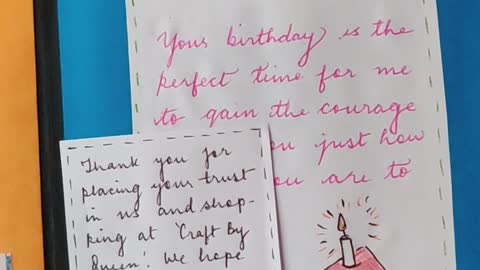 Your birthday is the
perfect time for me
to gain the courage
ou just how
ou are to
Thank you for
placing your trust
in us and shop-
ping at 'Craft By
Queen'. We hope